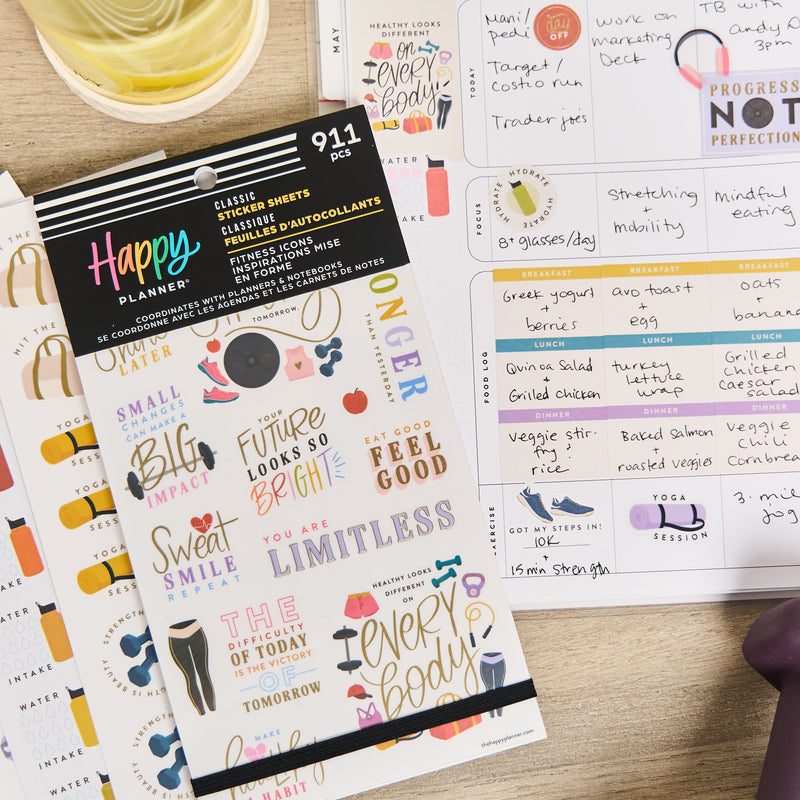 911
pcs
CLASSIC
STICKER SHEETS
CLASSIQUE
FEUILLES D'AUTOCOLLANTS
Happy
PLANNER®
FITNESS ICONS
INSPIRATIONS MISE
EN FORME
COORDINATES WITH PLANNERS & NOTEBOOKS
SE COORDONNE AVEC LES AGENDAS ET LES CARNETS DE NOTES
LATER
TOMORROW.
ONGER
THAN YESTERDAY
SMALL
CHANGES
CAN MAKE A
BIG
IMPACT
YOUR
FUTURE
LOOKS SO
BRIGHT
EAT GOOD
FEEL
GOOD
Sweat
SMILE
REPEAT
YOU ARE
LIMITLESS
THE
DIFFICULTY
OF TODAY
IS THE VICTORY
OF
TOMORROW
HEALTHY LOOKS
DIFFERENT
ON
every
body
MAKE
healthy
A HABIT
thehappyplanner.com
HIT THE
YOGA
SESS
YOGA
SESS
YOGA
SESS
STRENGTH IS BEAUTY
STRENGTH IS BEAUTY
INTAKE
WATER
INTAKE
WATER
INTAKE
WATER
MAY
HEALTHY LOOKS
DIFFERENT
on
every
body!
WATER
TODAY
Mani/
pedi
day
OFF
Target/
costco run
Trader joes
work on
marketing
Deck
TB with
Andy
3pm
PROGRESS
NOT
PERFECTION
FOCUS
HYDRATE HYDRATE HYDRATE
8+ glasses/day
Stretching
+
mobility
mindful
eating
FOOD LOG
BREAKFAST
BREAKFAST
BREAKFAST
Greek yogurt
+
berries
avo toast
+
egg
oats
+
banana
LUNCH
LUNCH
LUNCH
Quinoa Salad
+
Grilled chicken
turkey
lettuce
wrap
Grilled
chicken
caesar
salad
DINNER
DINNER
DINNER
veggie stir-
fry +
rice
Baked Salmon
+
roasted veggies
veggie
chili
Cornbrea
EXERCISE
GOT MY STEPS IN!
10K
+
15 min strength
YOGA
SESSION
3-mil
jog